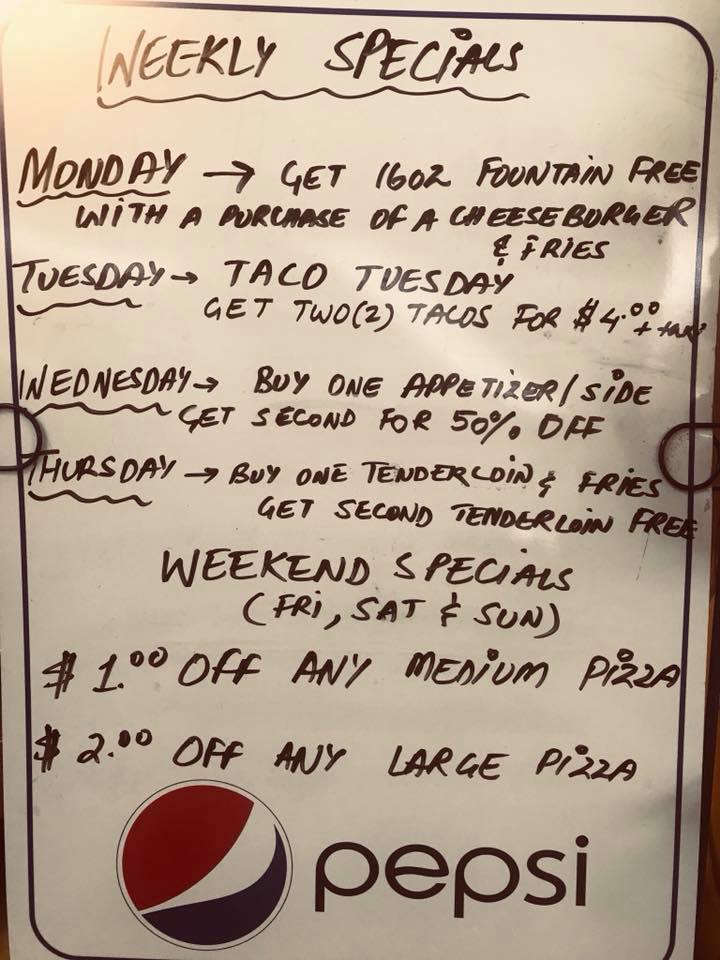 WEEKLY SPECIALS
MONDAY → GET 16OZ FOUNTAIN FREE
WITH A PURCHASE OF A CHEESEBURGER
& FRIES
TUESDAY → TACO TUESDAY
GET TWO(2) TACOS FOR $4.00 + tax
WEDNESDAY → BUY ONE APPETIZER/SIDE
GET SECOND FOR 50% OFF
THURSDAY → BUY ONE TENDERLOIN & FRIES
GET SECOND TENDERLOIN FREE
WEEKEND SPECIALS
(FRI, SAT & SUN)
$1.00 OFF ANY MEDIUM PIZZA
$2.00 OFF ANY LARGE PIZZA
pepsi